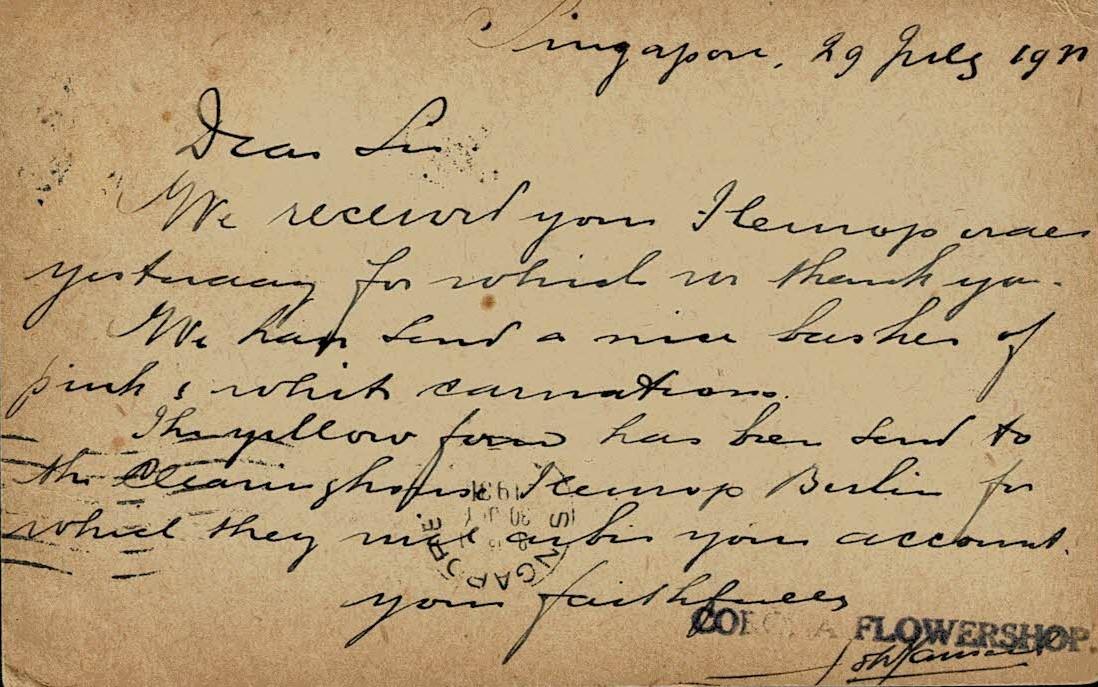 Singapore, 29 July 193
Dear Sir
We received your Fleurop order
yesterday for which we thank you.
We have send a nice basket of
pink & white carnations.
The yellow form has been send to
the Clearinghouse Fleurop Berlin for
which they will debit your account.
your faithfully
FLOWERSHOP.
SINGAPORE.
30 JY
193